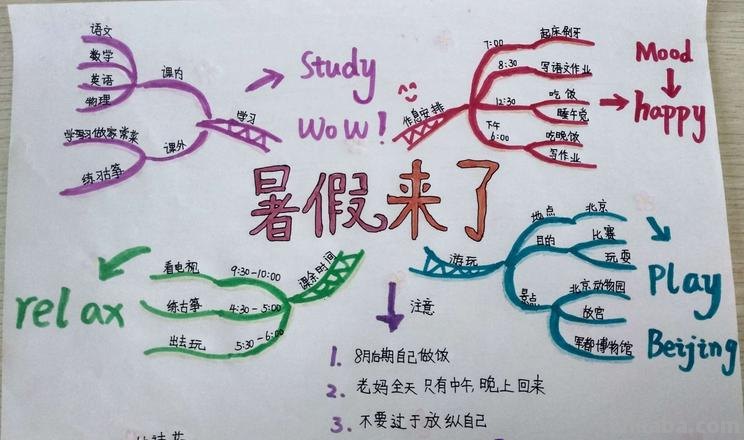 语文
数学
英语
物理
课内
学习做家常菜
练习古筝
课外
学习
Study
WoW!
7:00
起床刷牙
8:30
写语文作业
12:30
吃饭
睡午觉
下午
6:00
吃晚饭
写作业
作息安排
Mood
happy
暑假来了
看电视
9:30-10:00
练古筝
4:30-5:00
出去玩
5:30-6:00
课余时间
relax
游玩
地点
北京
目的
比赛
玩耍
景点
北京动物园
故宫
军都博物馆
Play
Beijing
注意
1. 8月后期自己做饭
2. 老妈全天只有中午,晚上回来
3. 不要过于放纵自己